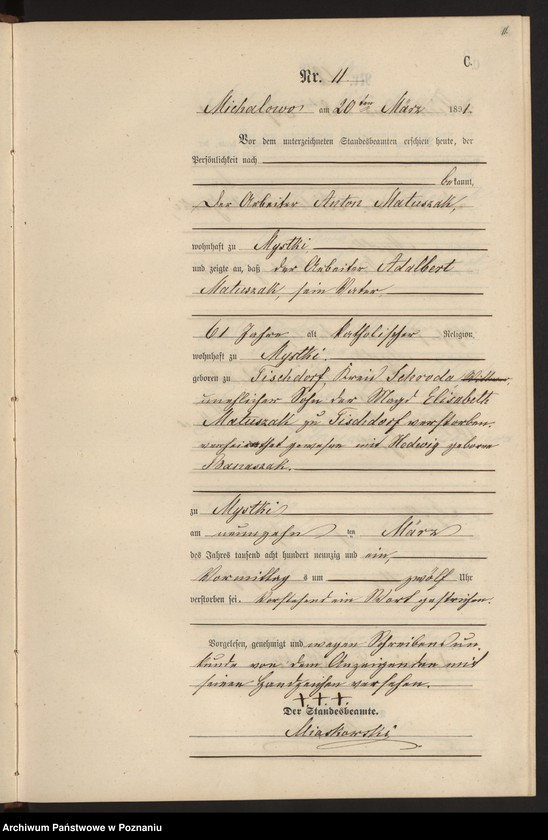 11
C.
Nr. 11
Michalowo am 20ten März 1891.
Vor dem unterzeichneten Standesbeamten erschien heute, der
Persönlichkeit nach
bekannt,
Der Arbeiter Anton Matuszak,
wohnhaft zu Mystki
und zeigte an, daß der Arbeiter Adalbert
Matuszak, sein Vater,
61 Jahre alt katholischer Religion
wohnhaft zu Mystki.
geboren zu Tischdorf Kreis Schroda
unehlicher Sohn der Magd Elisabeth
Matuszak zu Tischdorf verstorben.
verheirathet gewesen mit Hedwig geborne
Banaszak.
zu Mystki
am neunzehn ten März
des Jahres tausend acht hundert neunzig und ein,
Vormittags um zwölf Uhr
verstorben sei. Vorstehend ein Wort gestrichen.
Vorgelesen, genehmigt und wegen Schreibensun-
kunde von dem Anzeigenden mit
seinen Handzeichen versehen.
+++
Der Standesbeamte.
Miaskowski
Archiwum Państwowe w Poznaniu